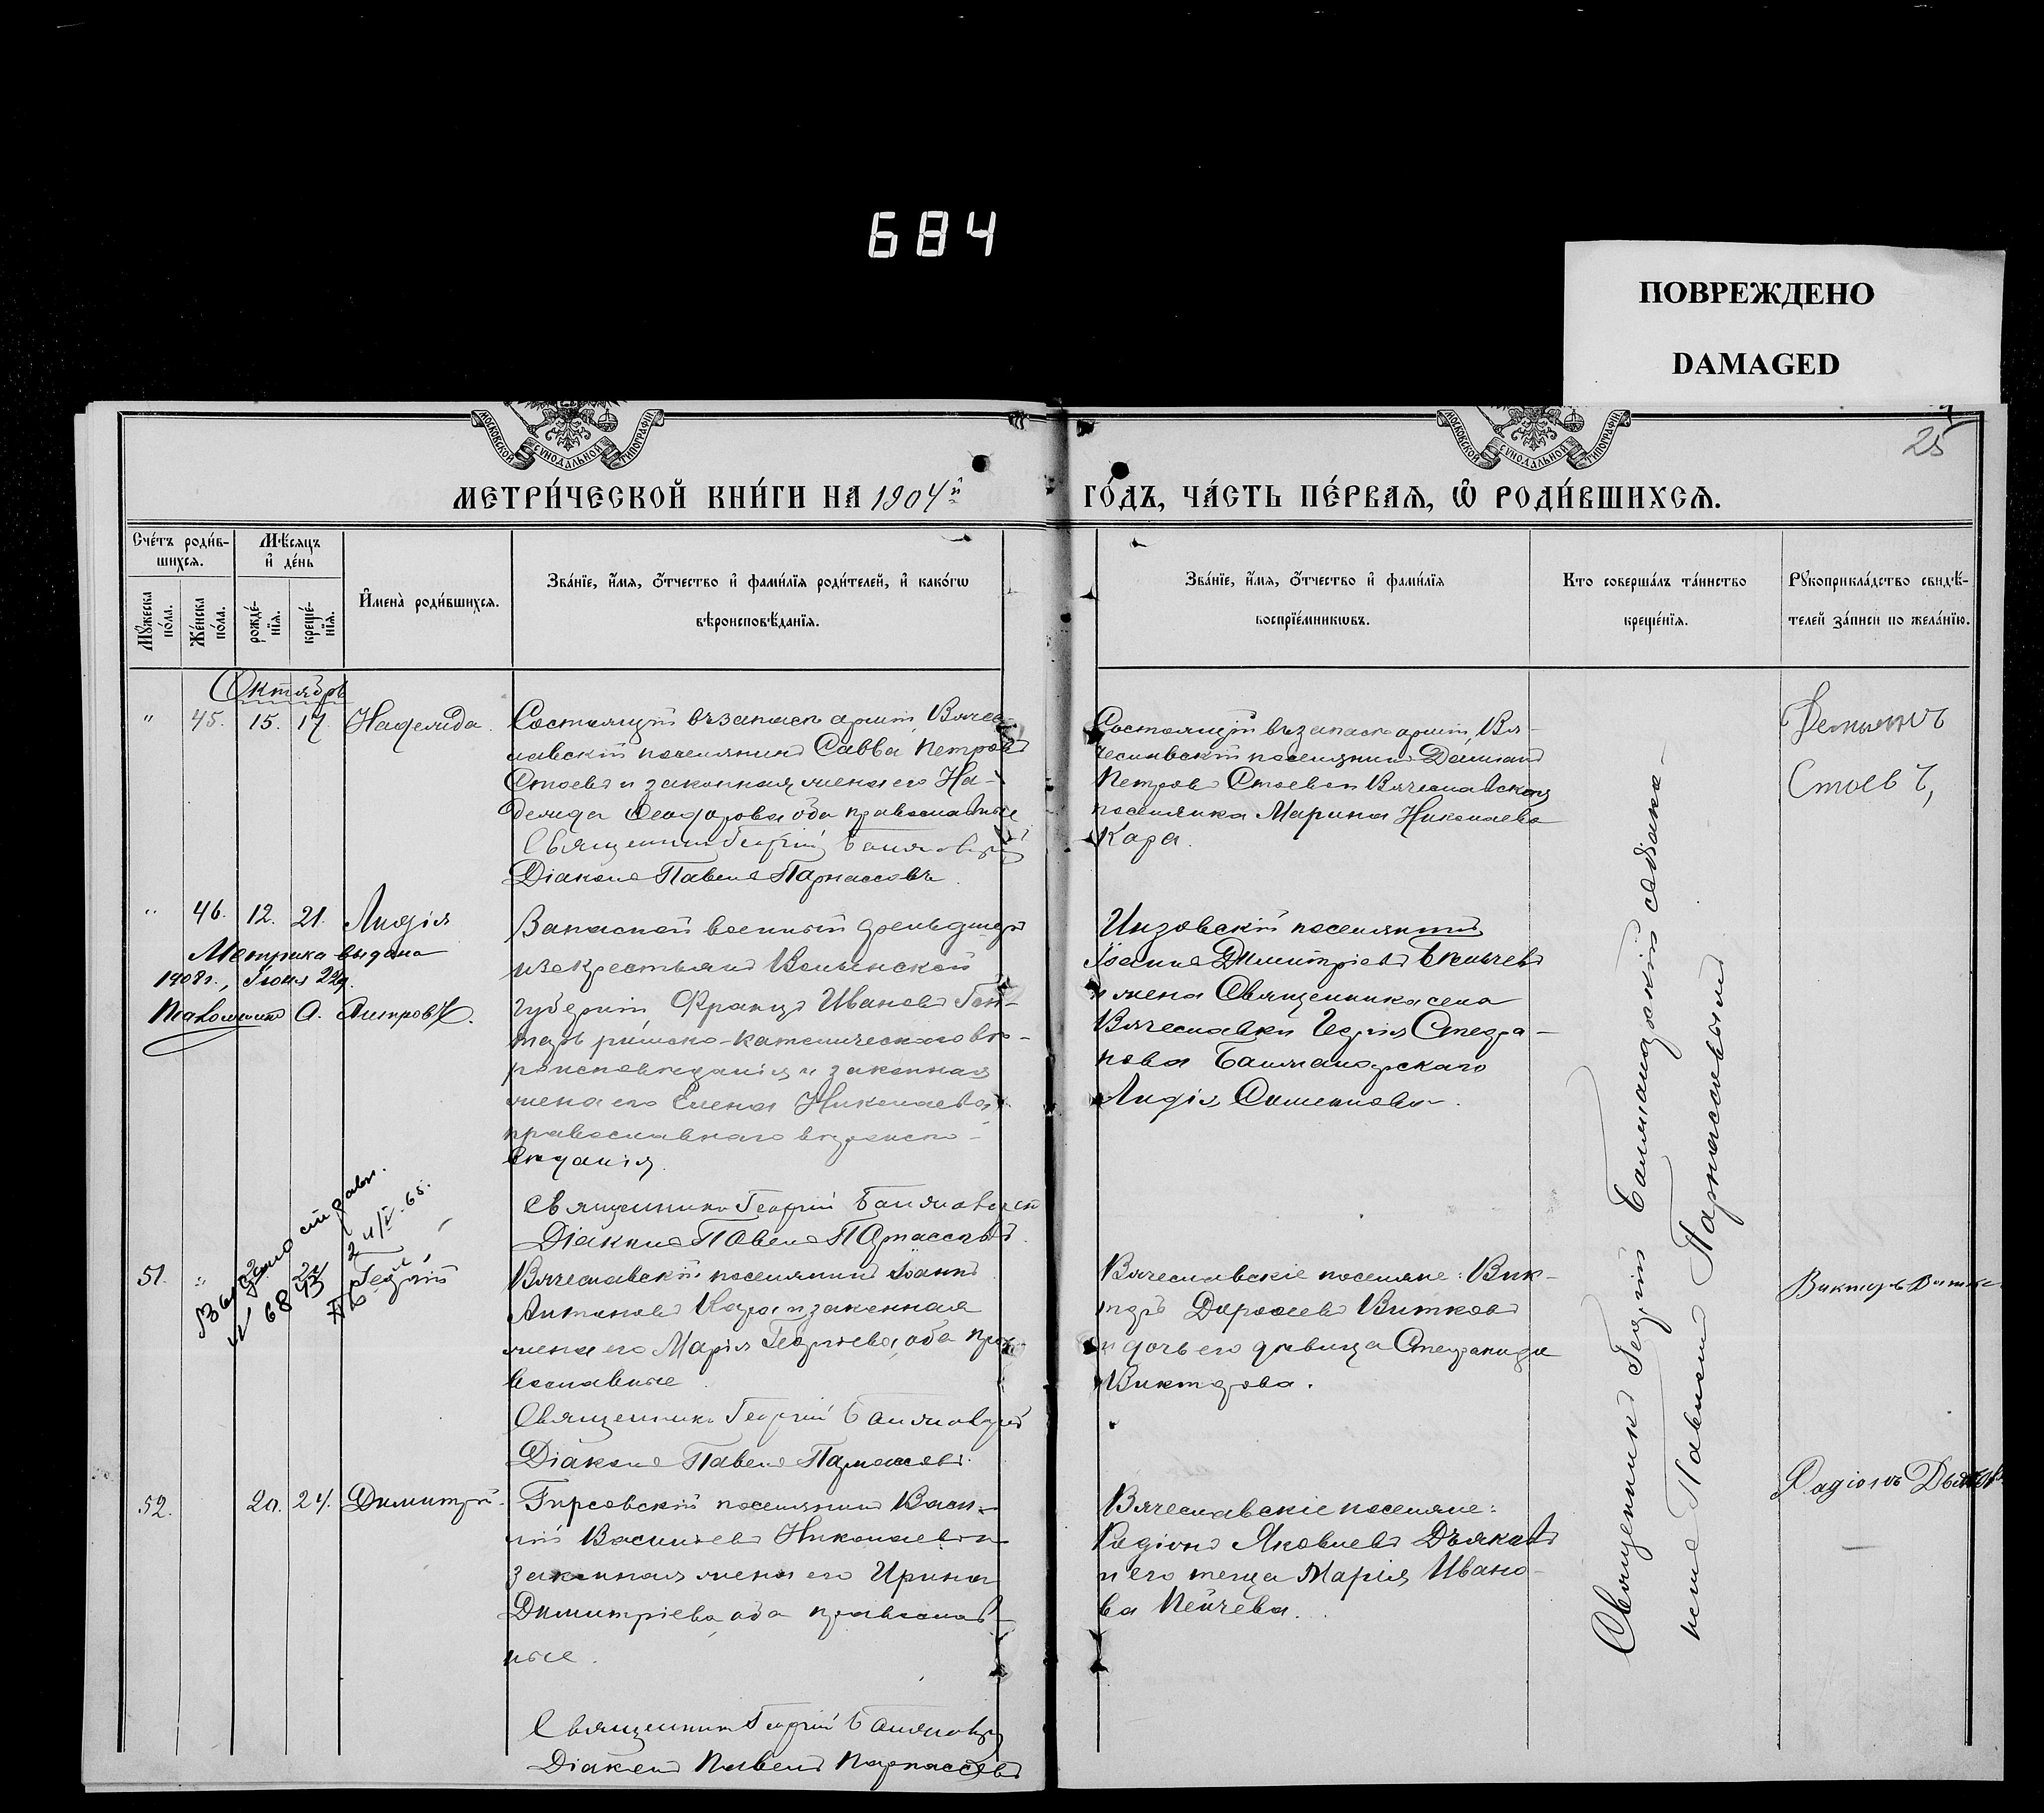 684
ПОВРЕЖДЕНО
DAMAGED
МОСКОВСКОЙ СѴНОДАЛЬНОЙ ТИПОГРАФІИ
МОСКОВСКОЙ СѴНОДАЛЬНОЙ ТИПОГРАФІИ
25
МЕТРИ́ЧЕСКОЙ КНИ́ГИ НА 1904й
ГО́ДЪ, ЧА́СТЬ ПЕ́РВАЯ, Ѡ РОДИ́ВШИХСЯ.
Сче́тъ роди́в-
шихся.
Мѣ́сяцъ
и де́нь
Мꙋ́жеска по́ла.
Же́нска по́ла.
рожде́-
нїя.
креще́-
нїя.
И҆мена̀ роди́вшихся.
Зва́нїе, и҆́мя, ѻ҆́тчество и҆ фами́лїя роди́телей, и҆ како́гѡ
вѣроисповѣ́данїя.
Зва́нїе, и҆́мя, ѻ҆́тчество и҆ фами́лїя
воспрїе́мникѡвъ.
Кто соверша́лъ та́инство
креще́нїя.
Рꙋкоприкла́дство свидѣ́-
телей за́писи по жела́нїю.
Октябрь
" 45. 15. 17. Надежда.
Состоящій въ запасѣ арміи, Вячес-
лавскій поселянинъ Савва Петровъ
Стоевъ и законная жена его На-
дежда Ѳеодорова, оба православные
Священникъ Георгій
Діаконъ Павелъ Парнассовъ
Состоящій въ запасѣ арміи, Вя-
чеславскій поселянинъ Даміанъ
Петровъ Стоевъ и Вячеславская
поселянка Марина Николаева
Кара.
Демьянъ
Стоевъ,
" 46. 12. 21. Лидія
Метрика выдана
1908 г., Іюня 22 д.
Псаломщикъ А.
Запасной военный фельдшеръ
изъ крестьянъ Волынской
губерніи, Францъ Ивановъ
римско-католическаго вѣ-
роисповѣданія и законная
жена его Елена Николаева,
православнаго вѣроиспо-
вѣданія.
Священникъ Георгій
Діаконъ Павелъ Парнассовъ.
Инзовскій поселянинъ
Іоаннъ Димитріевъ
и жена Священника села
Вячеславки Георгія Стефа-
нова
Лидія Симеонова.
Выдано
N 6843
51. " Георгій
Вячеславскій поселянинъ Іоаннъ
Антоновъ Кара и законная
жена его Марія Георгіева, оба пра-
вославные.
Священникъ Георгій
Діаконъ Павелъ Парнассовъ.
Вячеславскіе поселяне: Вик-
торъ Дороѳеевъ Витковъ
и дочь его дѣвица Стефанида
Викторова.
Викторъ
52. 20. 24. Димитрій.
Гирсовскій поселянинъ Васи-
лій Васильевъ Николаевъ и
законная жена его Ирина
Димитріева, оба православ-
ные.
Священникъ Георгій
Діаконъ Павелъ Парнассовъ
Вячеславскіе поселяне:
Родіонъ Яковлевъ Дьяковъ
и его теща Марія Ивано-
ва Пейчева.
Радіонъ
Священникъ Георгій
Павломъ Парнассовымъ